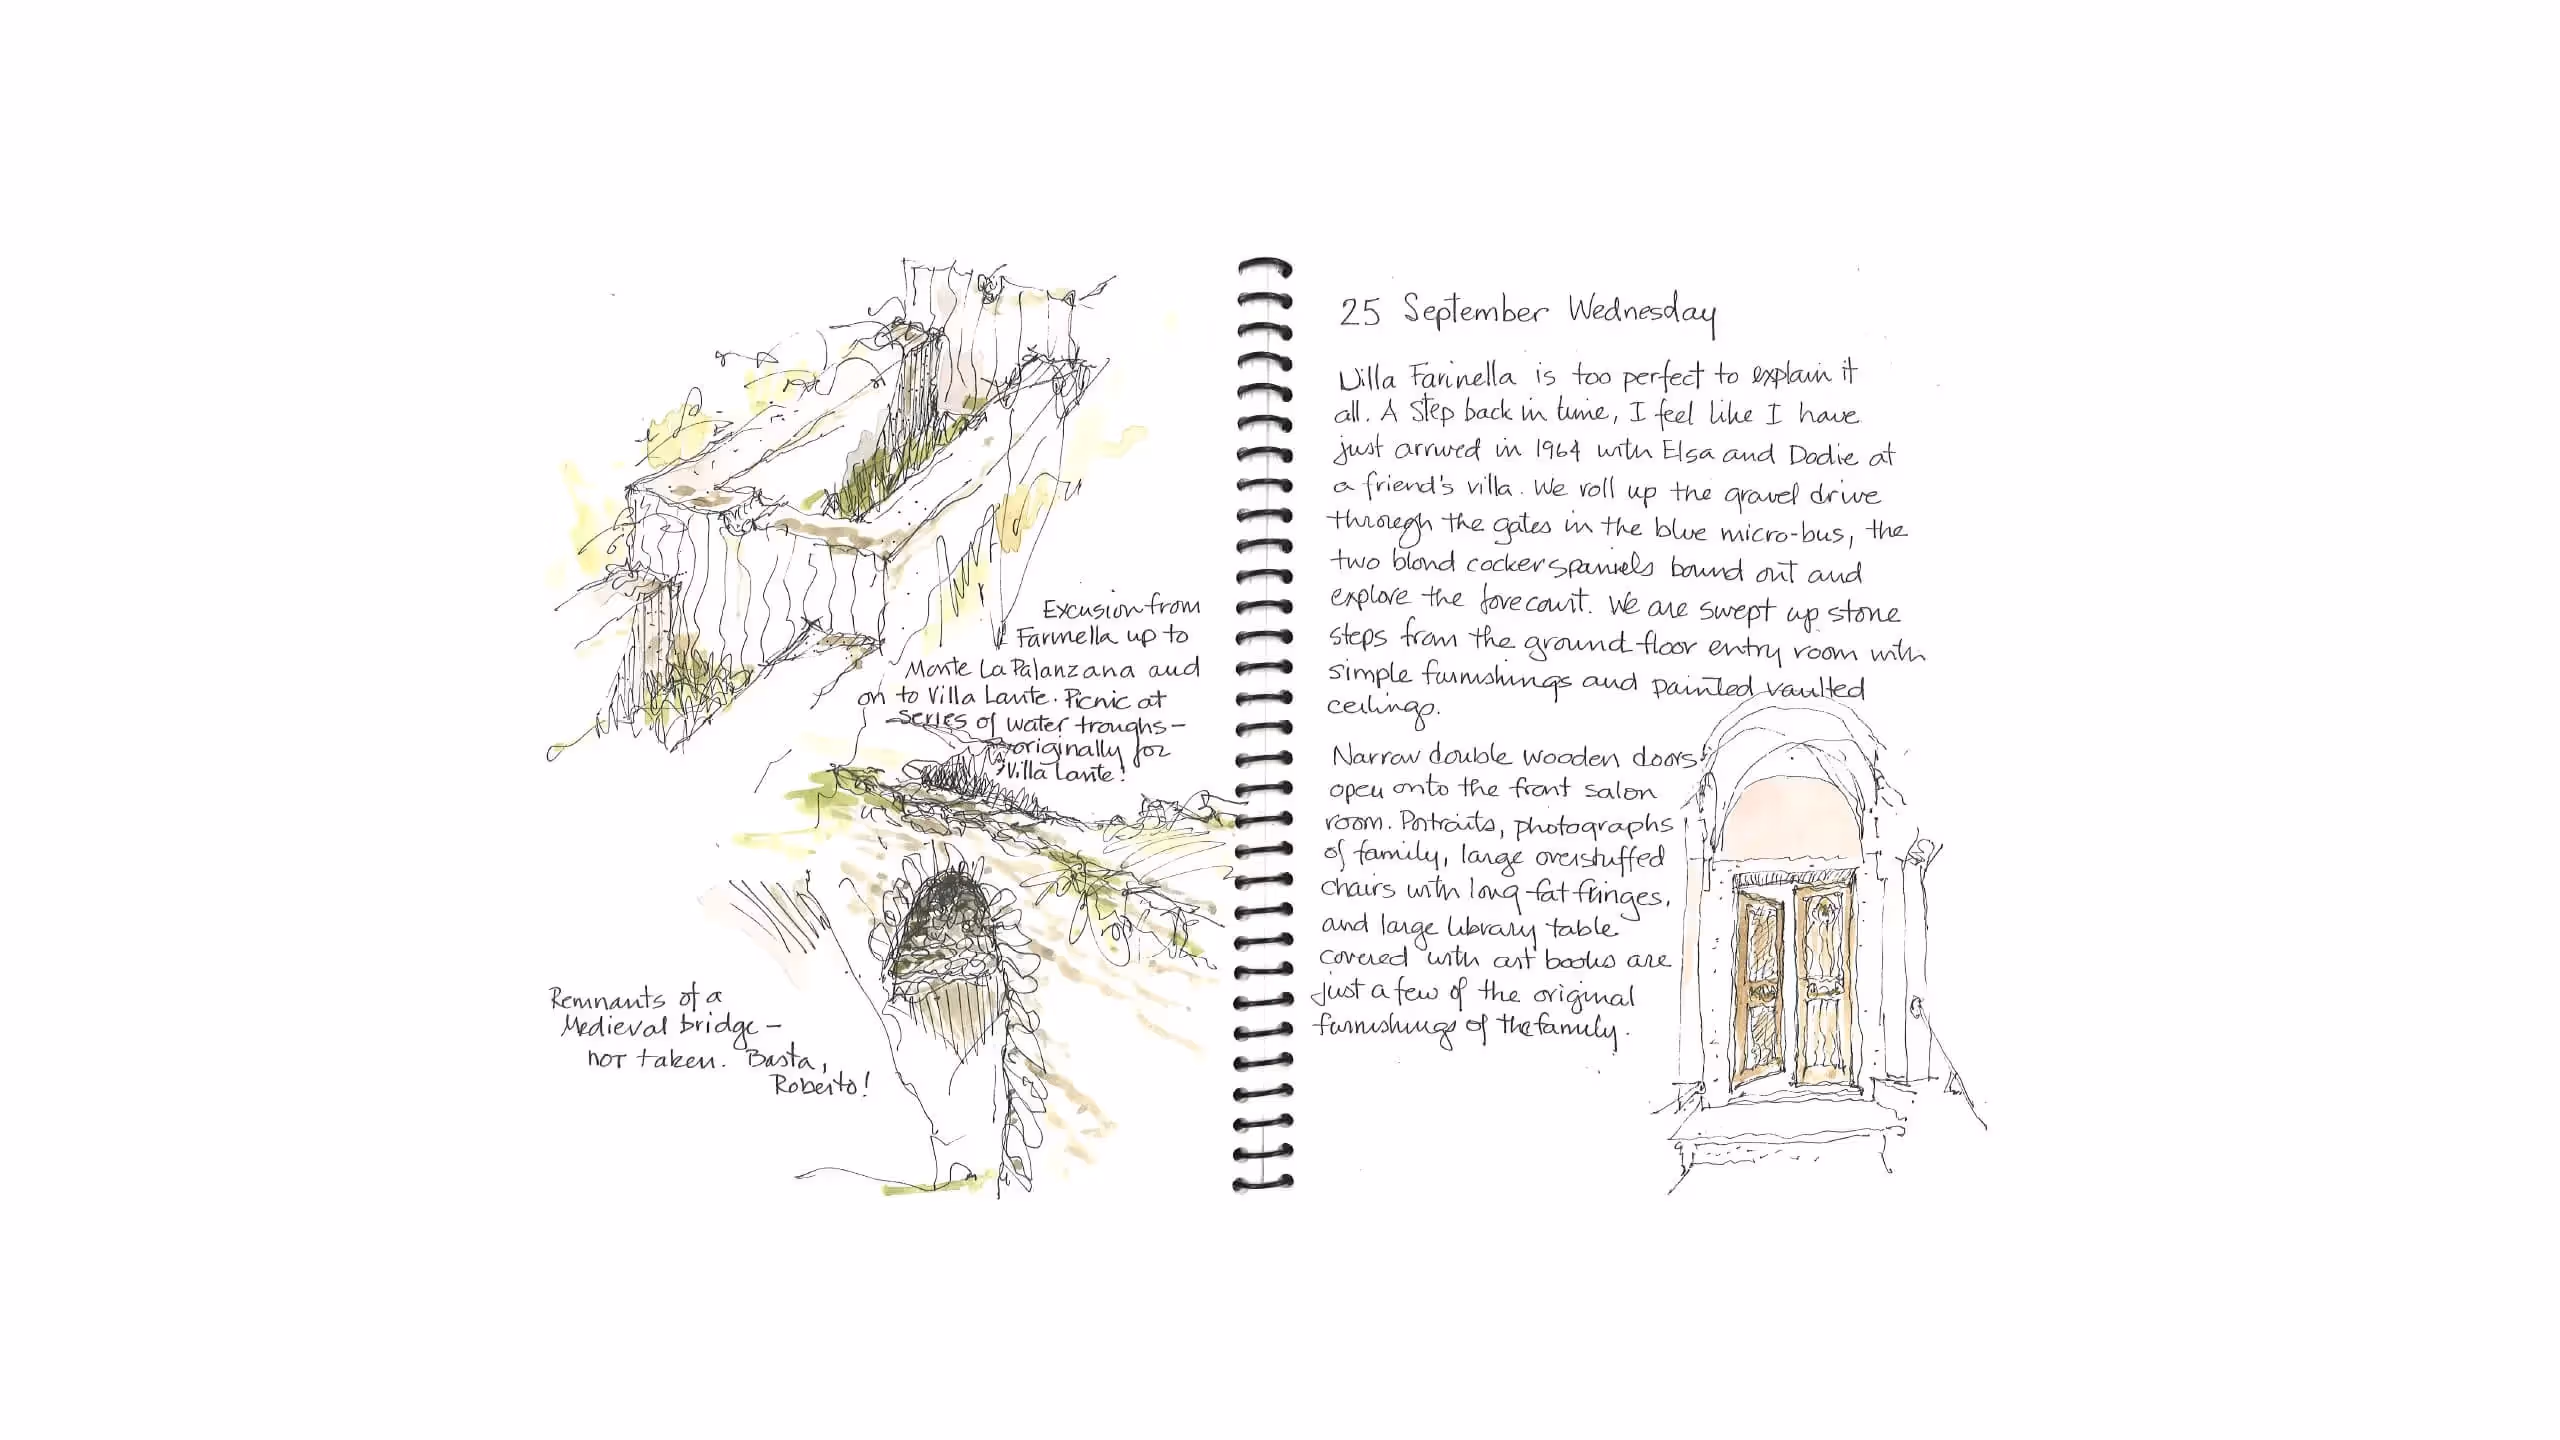 Excusion from
Farinella up to
Monte La Palanzana and
on to Villa Lante. Picnic at
series of water troughs –
originally for
Villa Lante!
Remnants of a
Medieval bridge –
not taken. Basta,
Roberto!
25 September Wednesday
Villa Farinella is too perfect to explain it
all. A step back in time, I feel like I have
just arrived in 1964 with Elsa and Dodie at
a friend's villa. We roll up the gravel drive
through the gates in the blue micro-bus, the
two blond cocker spaniels bound out and
explore the forecourt. We are swept up stone
steps from the ground floor entry room with
simple furnishings and painted vaulted
ceilings.
Narrow double wooden doors
open onto the front salon
room. Portraits, photographs
of family, large overstuffed
chairs with long fat fringes,
and large library table
covered with art books are
just a few of the original
furnishings of the family.